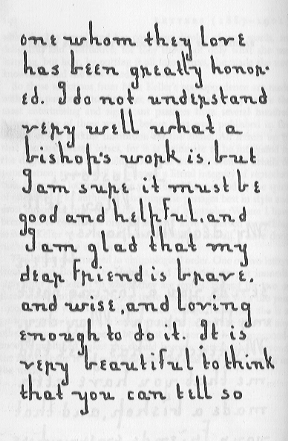 one whom they love
has been greatly honor-
ed. I do not understand
very well what a
bishop's work is, but
I am sure it must be
good and helpful, and
I am glad that my
dear friend is brave,
and wise, and loving
enough to do it. It is
very beautiful to think
that you can tell so